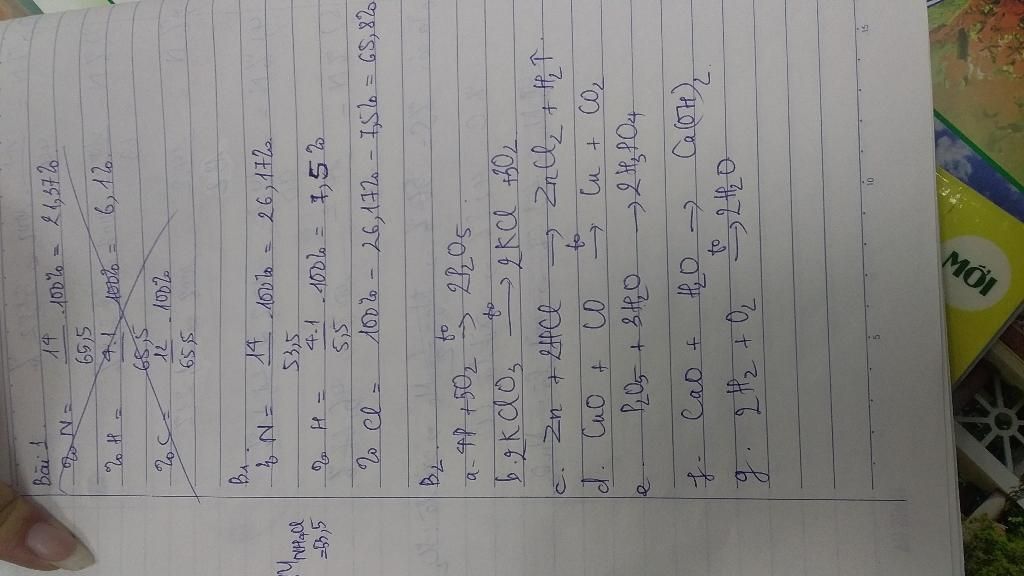 Bài 1
% N = 14/65,5 . 100% = 21,37%
% H = 4.1/65,5 . 100% = 6,1%
% C = 12/65,5 . 100%
B1.
M NH4Cl = 53,5
% N = 14/53,5 . 100% = 26,17%
% H = 4.1/5,5 . 100% = 7,5%
% Cl = 100% - 26,17% - 7,5% = 65,8%
B2.
a. 4P + 5O2 →(to) 2P2O5
b. 2KClO3 →(to) 2KCl + 3O2
c. Zn + 2HCl → ZnCl2 + H2↑
d. CuO + CO →(to) Cu + CO2
e. P2O5 + 3H2O → 2H3PO4
f. CaO + H2O → Ca(OH)2.
g. 2H2 + O2 →(to) 2H2O
5
10
15
MỚI